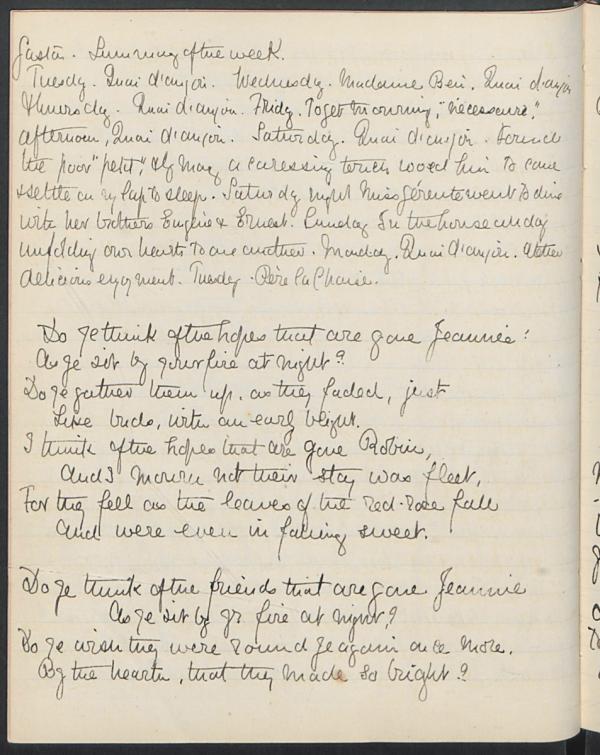 Gaston. Summing of the week.
Tuesday. Quai d'anjou. Wednesday. Madame Beri. Quai d'anjou
Thursday. Quai d'anjou. Friday. mourning, "necessaire."
afternoon, Quai d'anjou. Saturday. Quai d'anjou. Found
the poor "petit," & my a caressing touch wooed him to come
& settle on my lap to sleep. Saturday night Miss Gerente went to dine
with her brothers Eugène & Ernest. Sunday In the house all day
unfolding our hearts to one another. Monday. Quai d'anjou. Other
delicious enjoyment. Tuesday. Père la Chaise.
Do ye think of the hopes that are gone Jeannie?
As ye sit by your fire at night?
Do ye gather them up, as they faded, just
Like buds, with an early blight.
I think of the hopes that are gone Robin,
And I mourn not their stay was fleet,
For they fell as the leaves of the red-rose fall
And were even in falling sweet.
Do ye think of the friends that are gone Jeannie
As ye sit by yr fire at night?
Do ye wish they were round ye again once more.
By the hearth, that they made so bright?